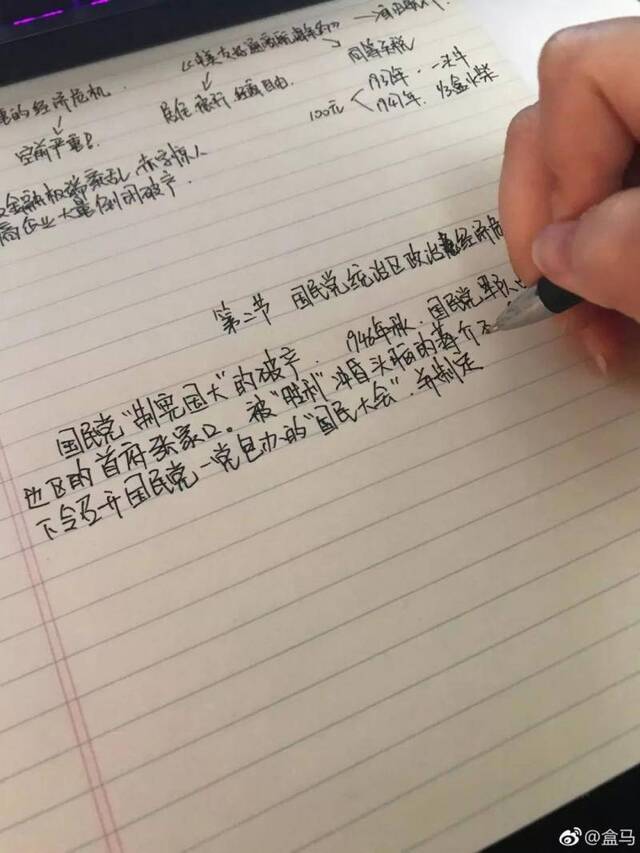 的经济危机
《中美友好通商航海条约》
同等

空前严重
居住 旅行 经商自由
100元 < 1937年. 一头牛
1947年. 1/3盒火柴
金融极端紊乱, 赤字惊人
商企业大量倒闭破产.
第二节 国民党统治区政治经济危
国民党“制宪国大”的破产. 1946年秋. 国民党军队
边区的首府张家口。被“胜利”冲昏头脑的蒋介石
下令召开国民党一党包办的“国民大会”. 并制定
盒马